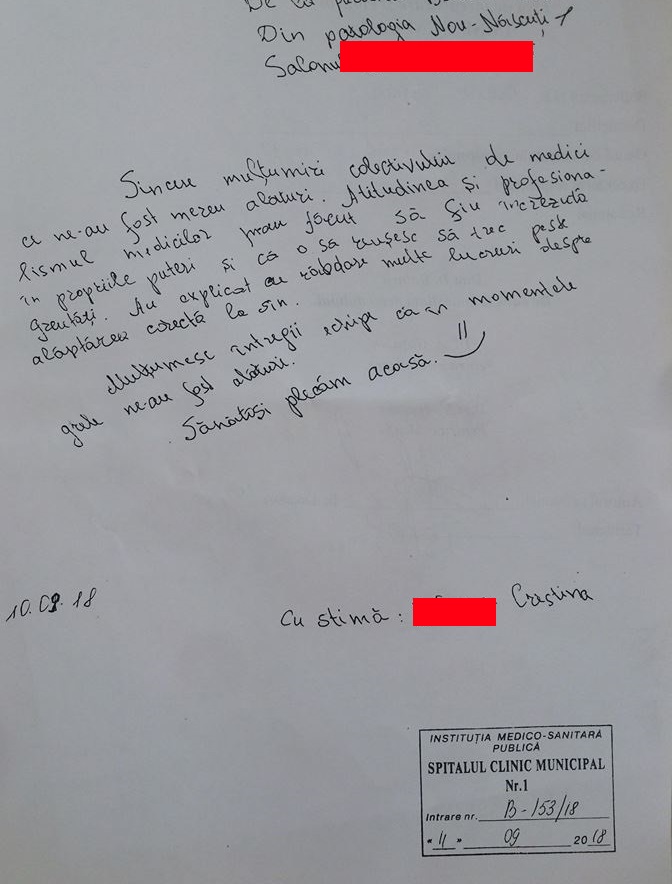 De la
Din patologia Nou-Născuți 1
Salonul
Sincere mulțumiri colectivului de medici
ce ne-au fost mereu alaturi. Atitudinea și profesiona-
lismul medicilor m-au făcut să fiu increzută
în propriile puteri și că o să reușesc să trec peste
greutăți. Au explicat cu răbdare multe lucruri despre
alăptarea corectă la sîn.
Mulțumesc întregii echipe ca in momentele
grele ne-au fost alaturi.
Sănatași plecăm acasă.
10.09.18
Cu stimă: Cristina
INSTITUȚIA MEDICO-SANITARĂ
PUBLICĂ
SPITALUL CLINIC MUNICIPAL
Nr.1
Intrare nr. B-153/18
"11" 09 2018